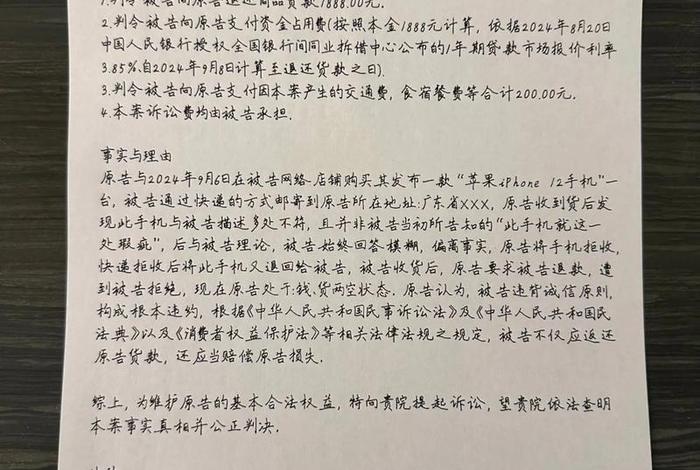 1.判令被告向原告退还商品货款1888.00元.
2.判令被告向原告支付资金占用费(按照本金1888元计算,依据2024年8月20日
中国人民银行授权全国银行间同业拆借中心公布的1年期贷款市场报价利率
3.85%.自2024年9月8日计算至退还货款之日).
3.判令被告向原告支付因本案产生的交通费,食宿餐费等合计200.00元.
4.本案诉讼费均由被告承担.
事实与理由
原告与2024年9月6日在被告网络店铺购买其发布一款“苹果iPhone 12手机”一
台,被告通过快递的方式邮寄到原告所在地址:广东省XXX,原告收到货后发
现此手机与被告描述多处不符,且并非被告当初所告知的“此手机就这一
处瑕疵”,后与被告理论,被告始终回答模糊,偏离事实,原告将手机拒收,
快递拒收后将此手机又退回给被告,被告收货后,原告要求被告退款,遭
到被告拒绝,现在原告处于:钱.货两空状态.原告认为,被告违背诚信原则,
构成根本违约,根据《中华人民共和国民事诉讼法》及《中华人民共和国民
法典》以及《消费者权益保护法》等相关法律法规之规定,被告不仅应返还
原告货款,还应当赔偿原告损失.
综上,为维护原告的基本合法权益,特向贵院提起诉讼,望贵院依法查明
本案事实真相并公正判决.